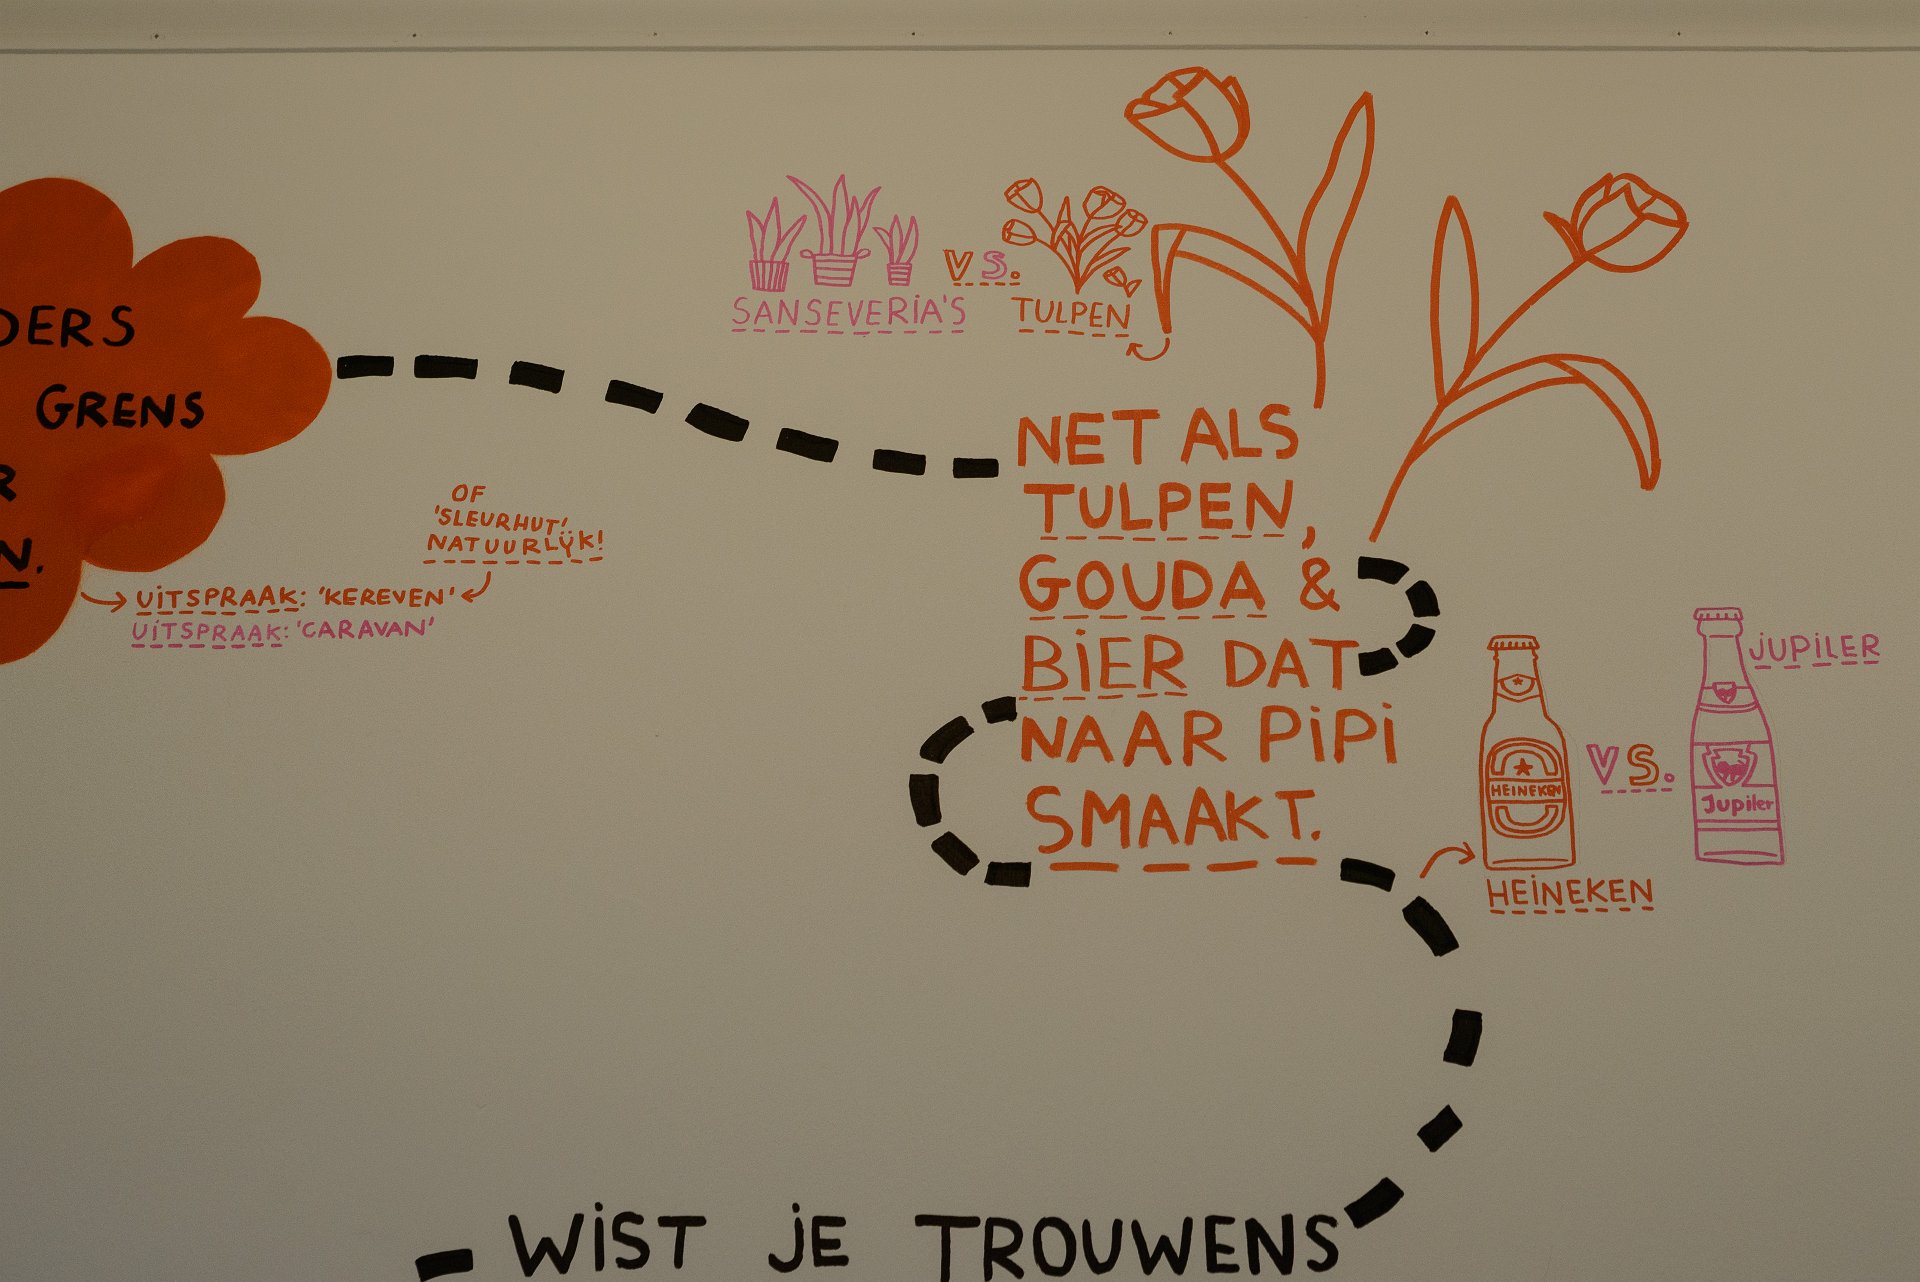 DERS
GRENS
R
N.
OF
'SLEURHUT'
NATUURLIJK!
UITSPRAAK: 'KEREVEN'
UITSPRAAK: 'CARAVAN'
SANSEVERIA'S
VS.
TULPEN
NET ALS
TULPEN,
GOUDA &
BIER DAT
NAAR PIPI
SMAAKT.
HEINEKEN
HEINEKEN
VS.
JUPILER
Jupiler
WIST JE TROUWENS